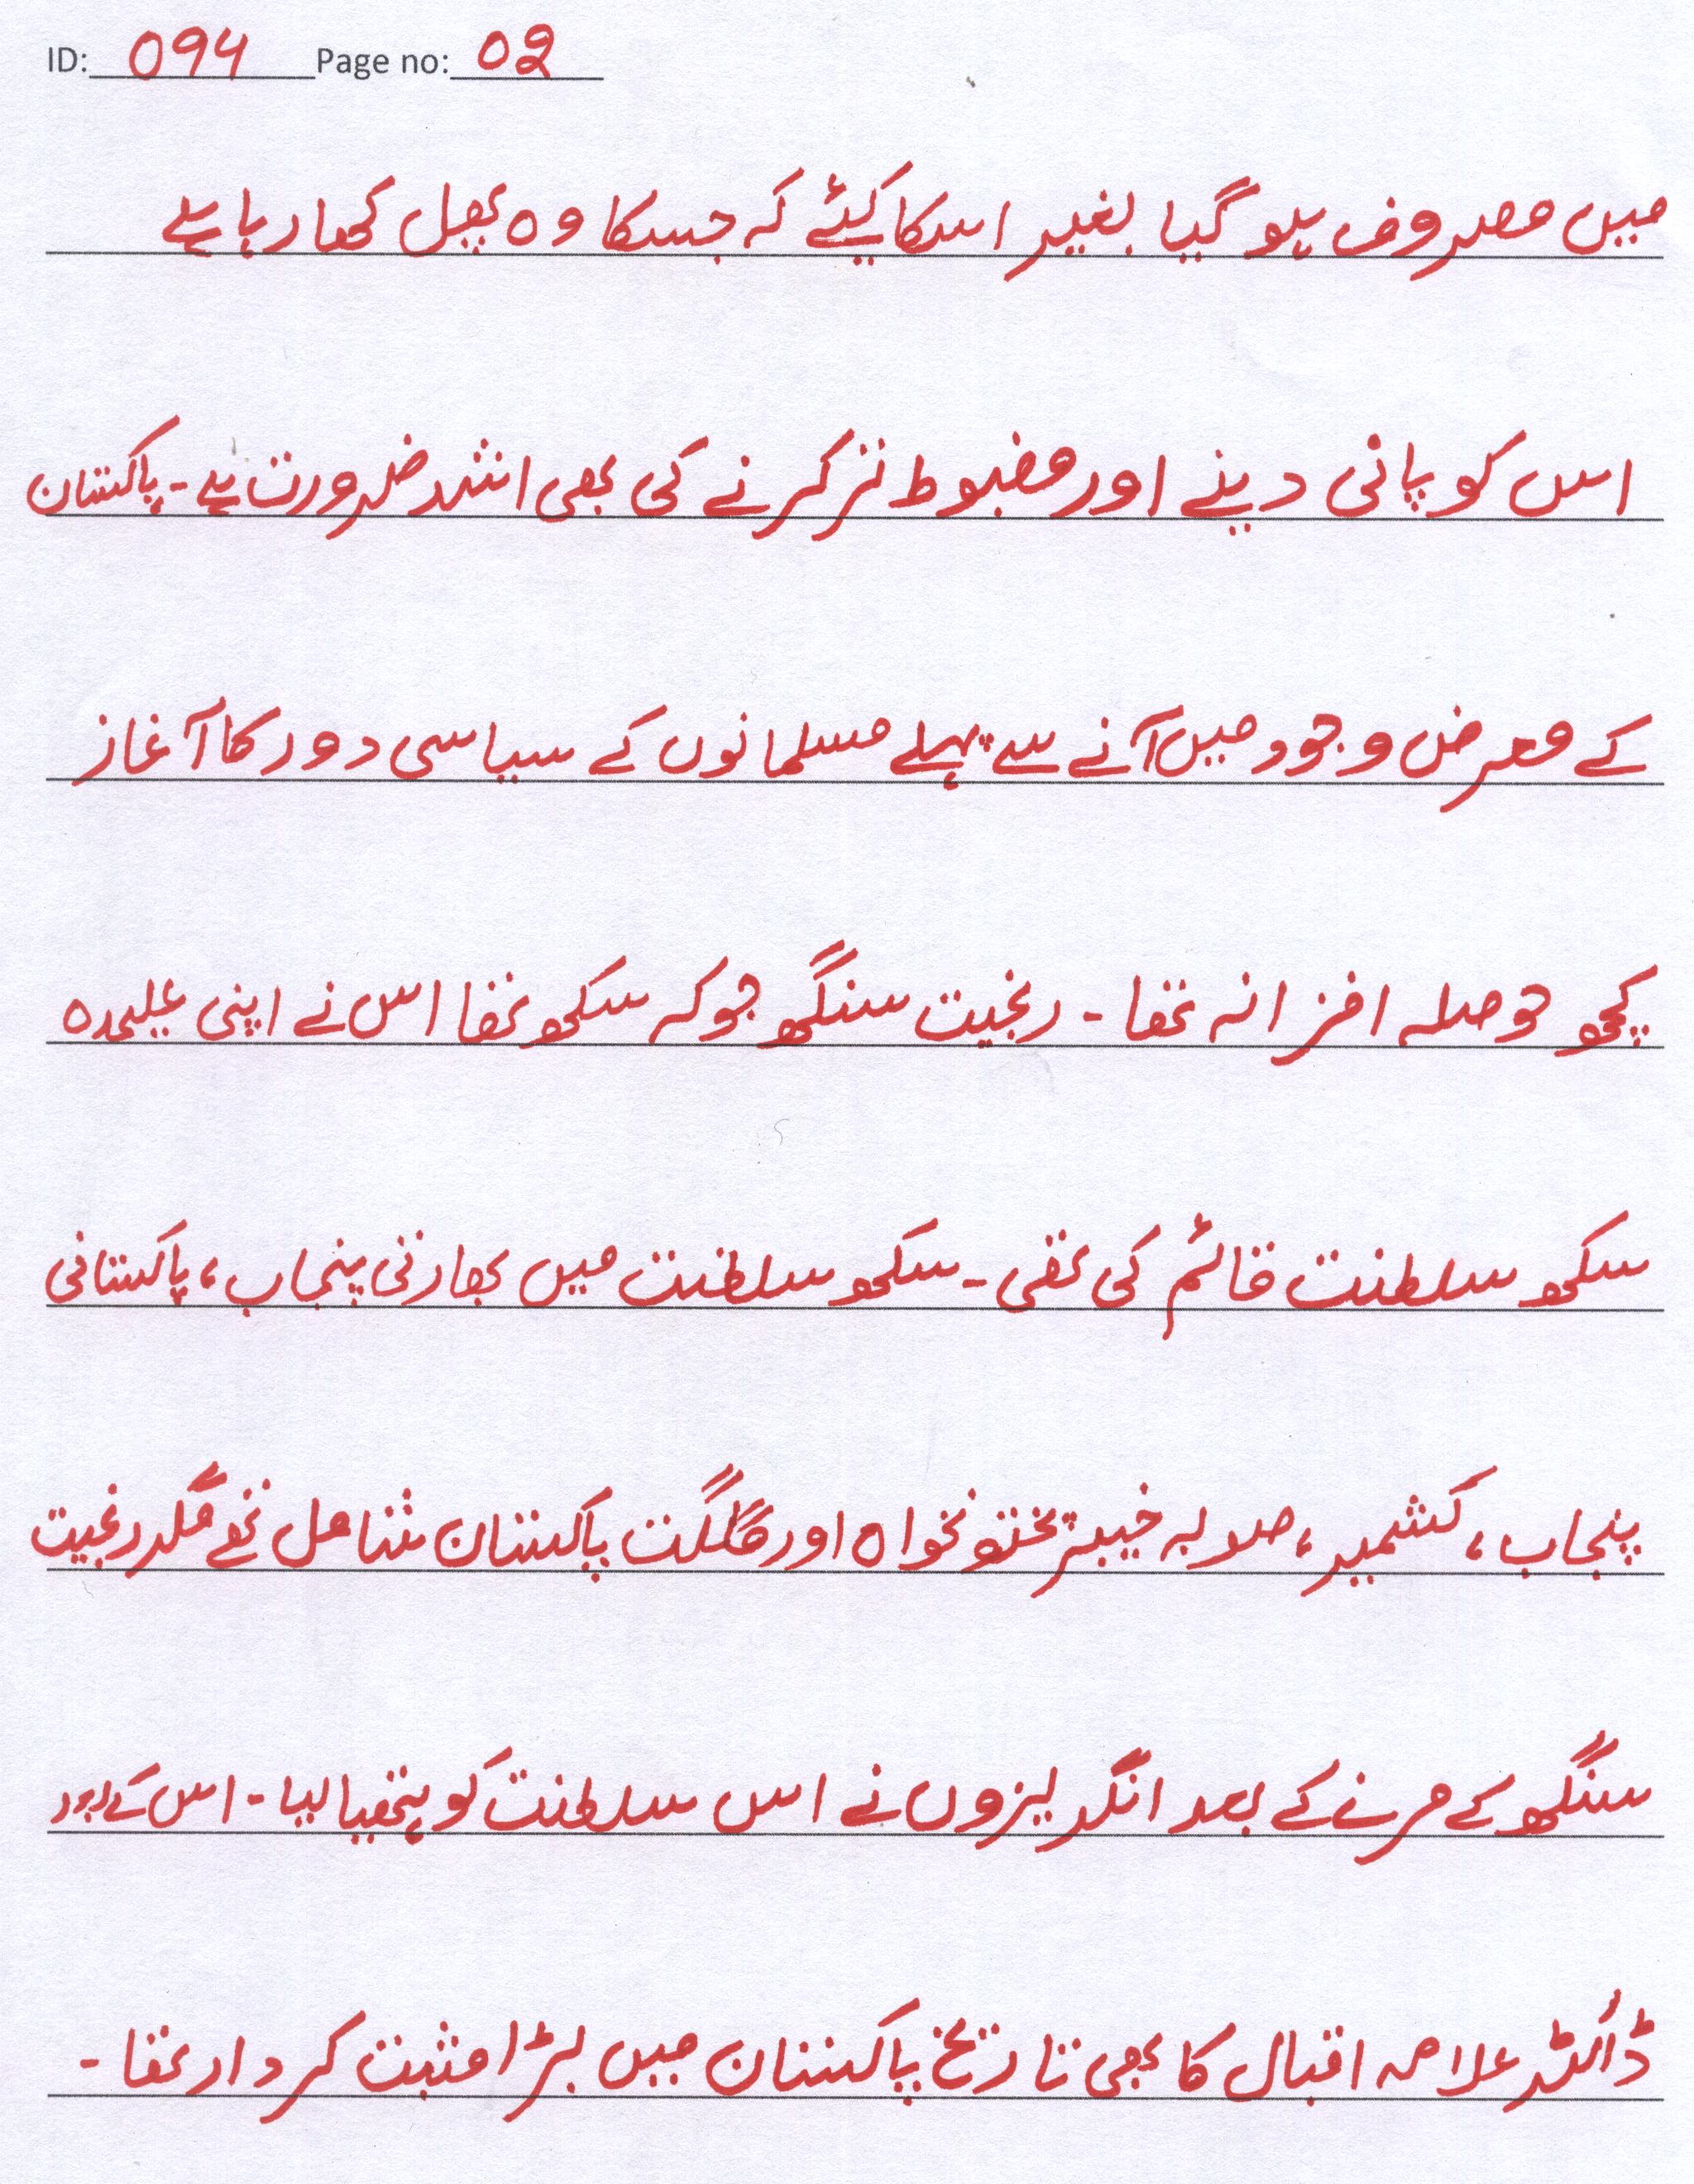 ID: 094 Page no: 02
میں مصروف ہو گیا بغیر اسکا کیئے کہ جسکا وہ پھل کھا رہا ہے
اس کو پانی دینے اور مضبوط تر کرنے کی بھی اشد ضرورت ہے۔ پاکستان
کے معرض وجود میں آنے سے پہلے مسلمانوں کے سیاسی دور کا آغاز
کچھ حوصلہ افزا نہ تھا۔ رنجیت سنگھ جو کہ سکھ تھا اس نے اپنی علیحدہ
سکھ سلطنت قائم کی تھی۔ سکھ سلطنت میں بھارتی پنجاب، پاکستانی
پنجاب، کشمیر، صوبہ خیبر پختونخواہ اور گلگت پاکستان شامل تھے مگر رنجیت
سنگھ کے مرنے کے بعد انگریزوں نے اس سلطنت کو ہتھیا لیا۔ اس کے بعد
ڈاکٹر علامہ اقبال کا بھی تاریخ پاکستان میں بڑا مثبت کردار تھا۔